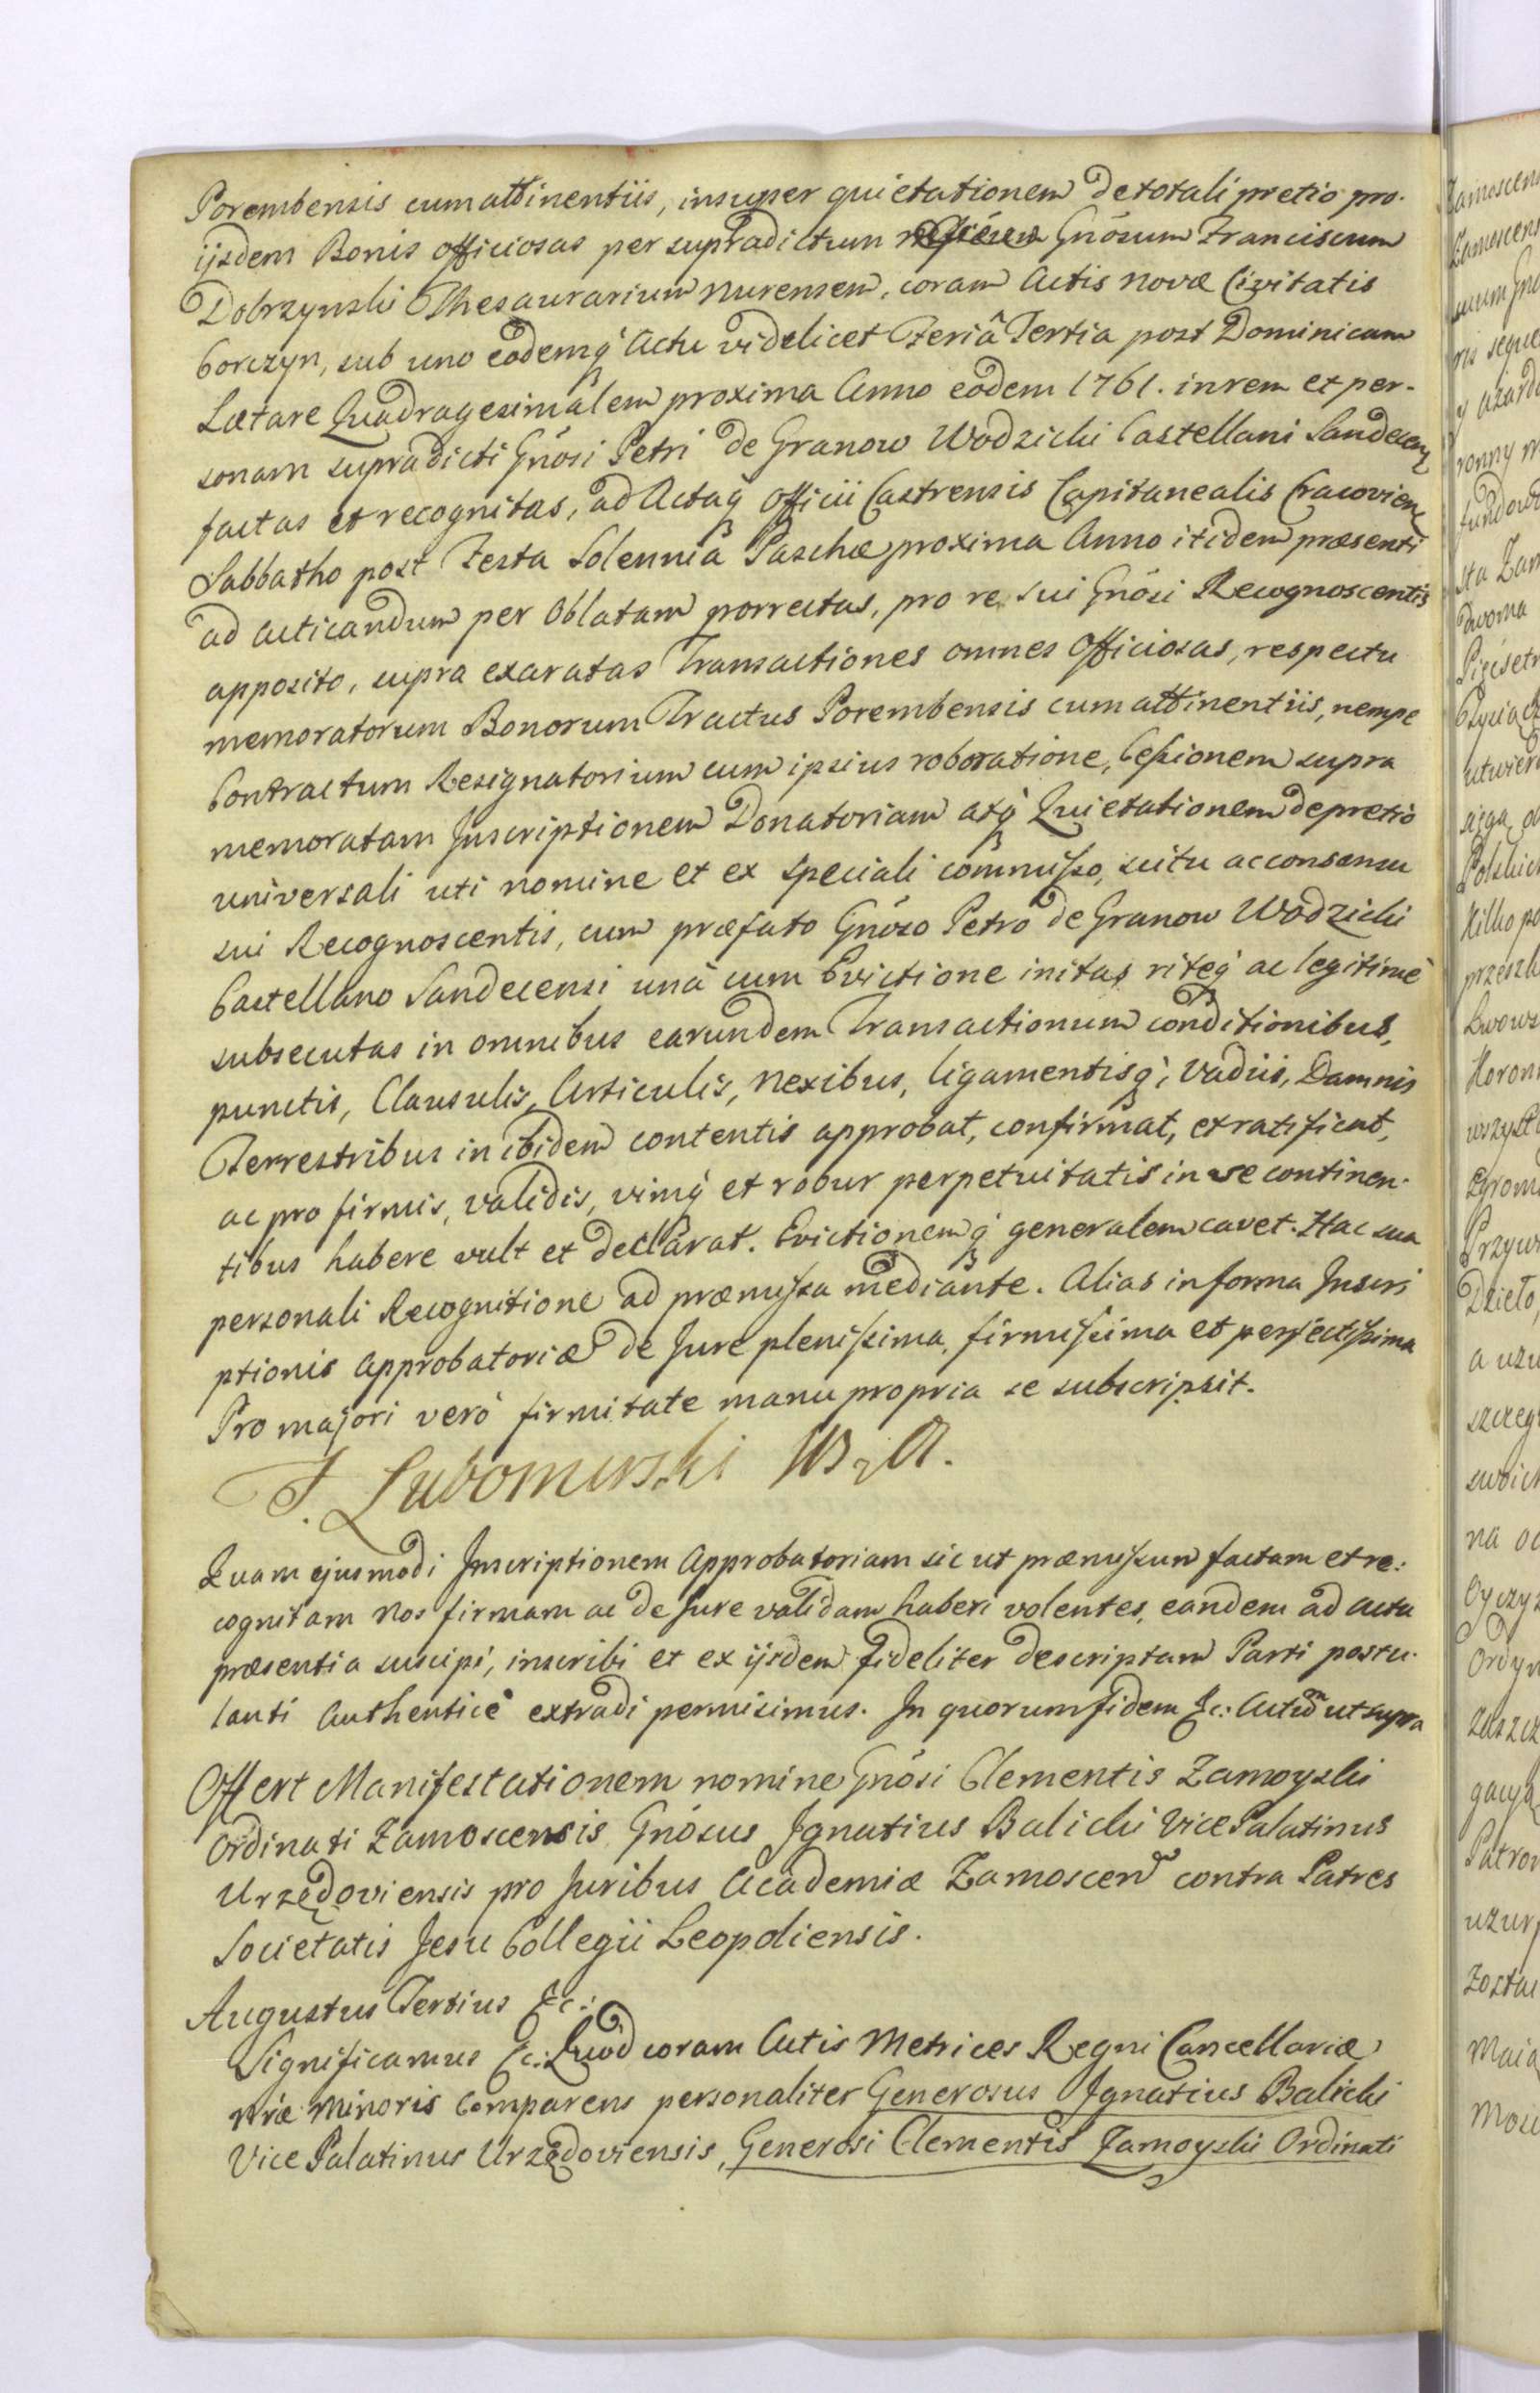 Porembensis cum attinentiis, insuper quietationem de totali pretio pro
ijsdem Bonis officiosas per supradictum Gnõsum Franciscum
Dobrzynski Thesaurarium Nurensem, coram Actis Novæ Civitatis
Corczyn, sub uno eodemq̃ Actu videlicet Feriâ Tertia post Dominicam
Lætare Quadragesimalem proxima Anno eodem 1761. in rem et per-
sonam supradicti Gnõsi Petri de Granow Wodzicki Castellani Sandecen
factas et recognitas, ad Actaq̃ Officii Castrensis Capitanealis Cracovien
Sabbatho post Festa Solennia Paschæ proxima Anno itidem præsenti
ad acticandum per Oblatam porrectas, pro re sui Gnõsi Recognoscentis
apposito, supra exaratas Transactiones omnes Officiosas, respectu
memoratorum Bonorum Tractus Porembensis cum attinentiis, nempe
Contractum Resignatorium cum ipsius roboratione, Cessionem supra
memoratam Inscriptionem Donatoriam atq̃ Quietationem de pretio
universali uti nomine et ex speciali commisso, scitu ac consensu
sui Recognoscentis, cum præfato Gnõso Petro de Granow Wodzicki
Castellano Sandecensi unà cum Evictione initas riteq̃ ac legitimè
subsecutas in omnibus earundem Transactionum conditionibus,
punctis, Clausulis, Articulis, Nexibus, ligamentisq̃, Vadiis, Damnis
Terrestribus in ibidem contentis approbat, confirmat, et ratificat,
ac pro firmis, validis, vimq̃ et robur perpetuitatis in se continen-
tibus habere vult et declarat. Evictionemq̃ generalem cavet. Hac sua
personali Recognitione ad præmissa mediante. Alias in forma Inscri
ptionis Approbatoriæ de Jure plenissima, firmissima et perfectissima
Pro majori verò firmitate manu propria se subscripsit.
Lubomirski
Quam ejusmodi Inscriptionem Approbatoriam sic ut præmissum factam et re:
cognitam Nos firmam ac de Jure validam haberi volentes, eandem ad Acta
præsentia suscipi, inscribi et ex ijsdem fideliter descriptam Parti postu-
lanti Authenticè extradi permisimus. In quorum fidem &c: Actum ut supra
Offert Manifestationem nomine Gnõsi Clementis Zamoyski
Ordinati Zamoscensis Gnõsus Ignatius Balicki Vice Palatinus
Urzędoviensis pro Juribus Academiæ Zamoscen contra Patres
Societatis Jesu Collegii Leopoliensis.
Augustus Tertius &c:
Significamus &c: Quod coram Actis Metrices Regni Cancellariæ
Nræ Minoris Comparens personaliter Generosus Ignatius Balicki
Vice Palatinus Urzędoviensis, Generosi Clementis Zamoyski Ordinati